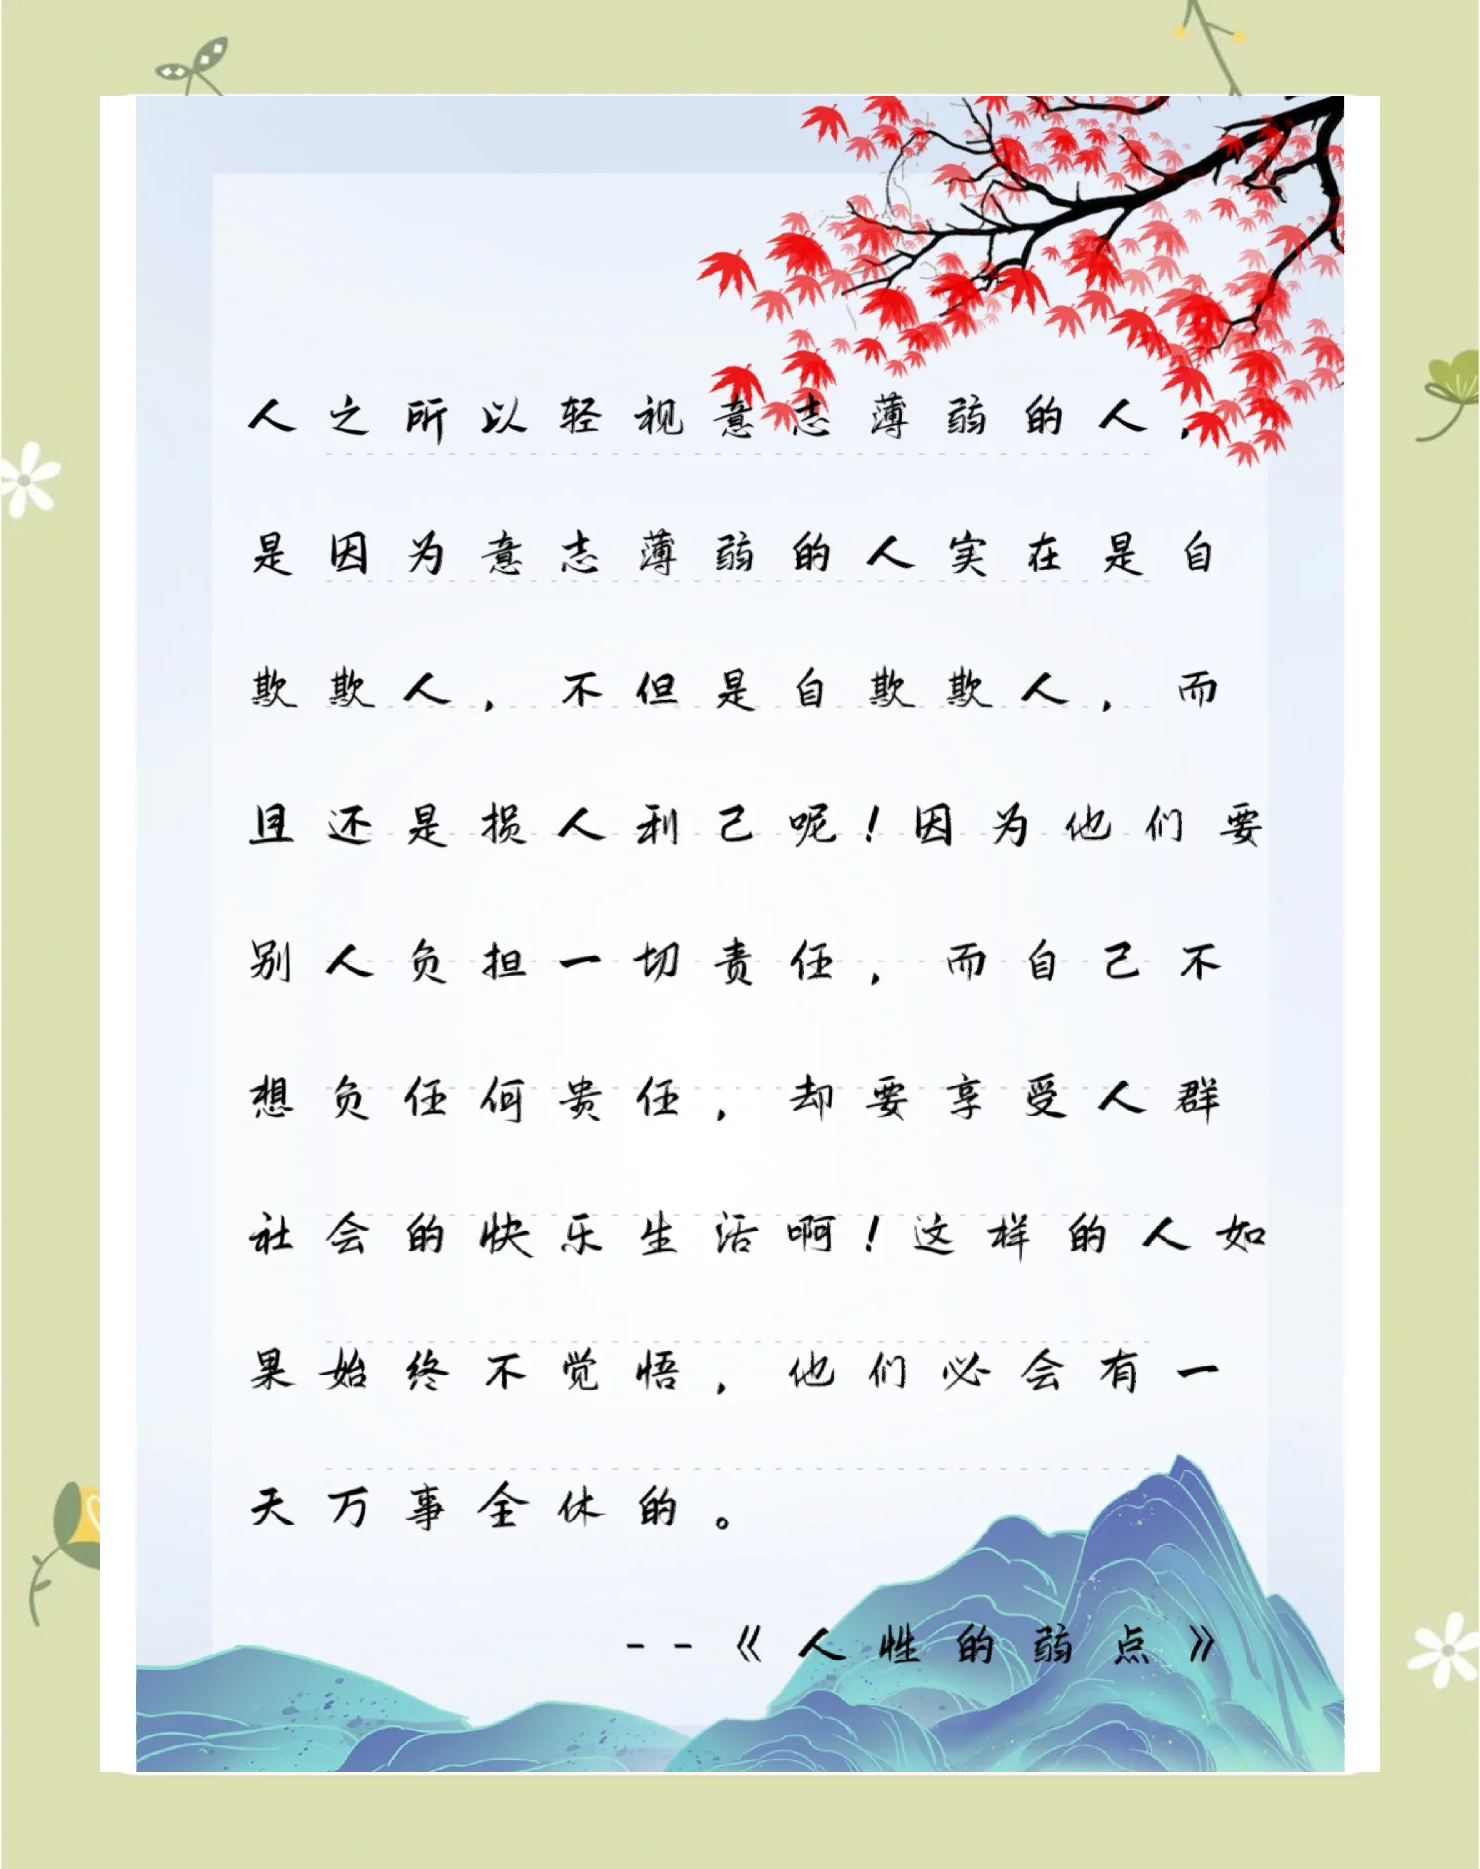 人之所以轻视意志薄弱的人，
是因为意志薄弱的人实在是自
欺欺人，不但是自欺欺人，而
且还是损人利己呢！因为他们要
别人负担一切责任，而自己不
想负任何贵任，却要享受人群
社会的快乐生活啊！这样的人如
果始终不觉悟，他们必会有一
天万事全休的。
--《人性的弱点》